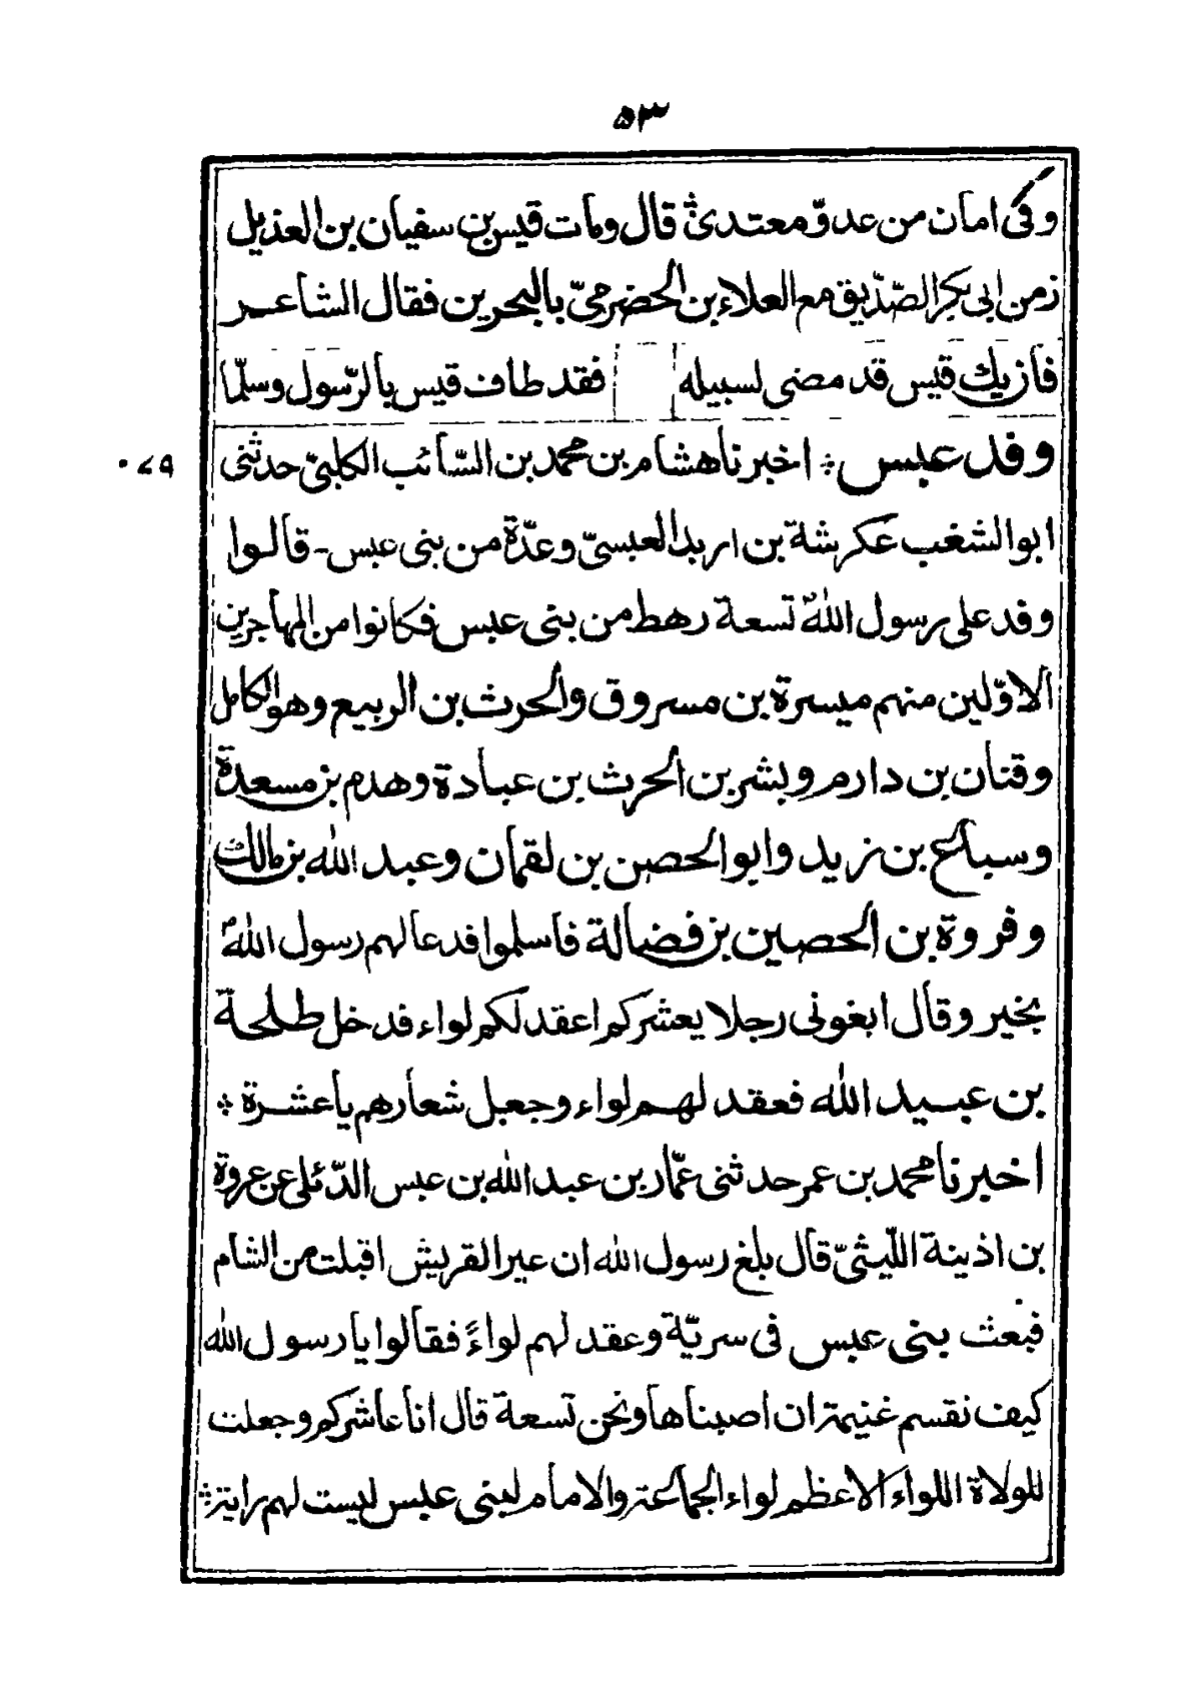 ٥٣
وكى امان من عدوّ معتدىٔ قال ومات قيس بن سفيان بن العذيل
زمن ابى بكر الصّدّيق مع العلاء بن الحضرمىّ بالبحرين فقال الشاعر
فان يك قيس قد مضى لسبيله فقد طاف قيس بالرّسول وسلّما
وفد عبس ❖ اخبرنا هشام بن محمد بن السّائب الكلبىّ حدثنى
٧٩
ابو الشغب عكرشة بن اربد العبسىّ وعدّة من بنى عبس - قالوا
وفد على رسول اللهؐ تسعة رهط من بنى عبس فكانوا من المهاجرين
الاوّلين منهم ميسرة بن مسروق والحرث بن الربيع وهو الكامل
وقنان بن دارم وبشر بن الحرث بن عبادة وهدم بن مسعدة
وسباع بن زيد وابو الحصن بن لقمان وعبد الله بن مالك
وفروة بن الحصين بن فضالة فاسلموا فدعا لهم رسول اللهؐ
بخير وقال ابغونى رجلا يعشركم اعقد لكم لواء فدخل طلحة
بن عبيد الله فعقد لهم لواء وجعل شعارهم يا عشرة ❖
اخبرنا محمد بن عمر حدثنى عمّار بن عبد الله بن عبس الدّئلى عن عروة
بن اذينة اللّيثىّ قال بلغ رسول الله ان عيرا لقريش اقبلت من الشام
فبعث بنى عبس فى سريّة وعقد لهم لواءً فقالوا يا رسول الله
كيف نقسم غنيمة ان اصبناها ونحن تسعة قال انا عاشركم وجعلت
للولاة اللواء الاعظم لواء الجماعة والامام لبنى عبس ليست لهم راية ❖